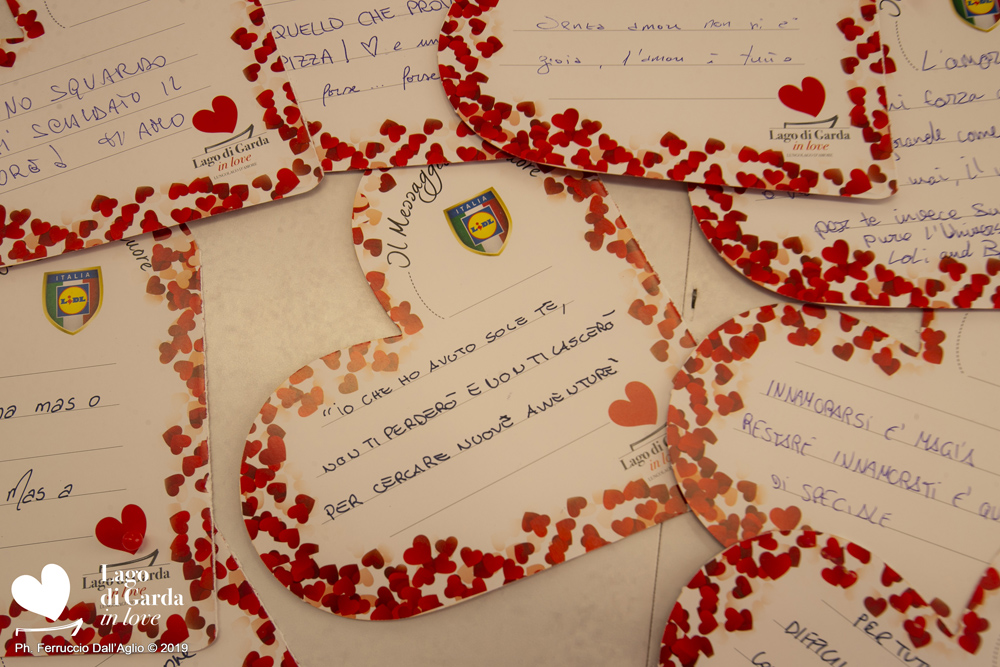 NO SQUARDO
SCALDATO IL
TI AMO
Lago di Garda
in love
QUELLO CHE
PIZZA! ♡ e un
forse ... forse
Senza amore non vi è
gioia, l'amore è tutto
Lago di Garda
in love
L'amore
forza
grande come
mai, Il
per te invece
pure l'Universo
Loli and B
ITALIA
LIDL
ma maso
Masa
Lago di Garda
Il Messaggio
cuore
ITALIA
LIDL
"IO CHE HO AVUTO SOLE TE,
NON TI PERDERÒ E NON TI LASCERÒ
PER CERCARE NUOVE AVVENTURE"
Lago di
in lo
INNAMORARSI E' MAGIA
RESTARE INNAMORATI E' QU
DI SPECIALE
PER TU
DIFFICI
Lago
di Garda
in love
Ph. Ferruccio Dall'Aglio © 2019